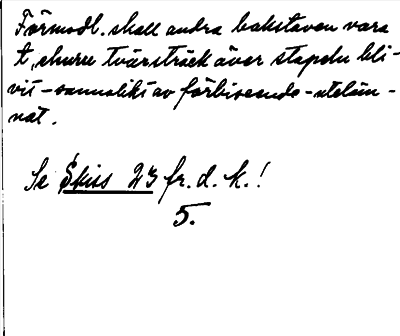 Förmodl. skall andra bokstaven vara
t, hvars tvärsträck över stapeln bli-
vit – sannolikt av förbiseende – uteläm-
nat.
Se Skiss 23 fr. d. k.!
5.